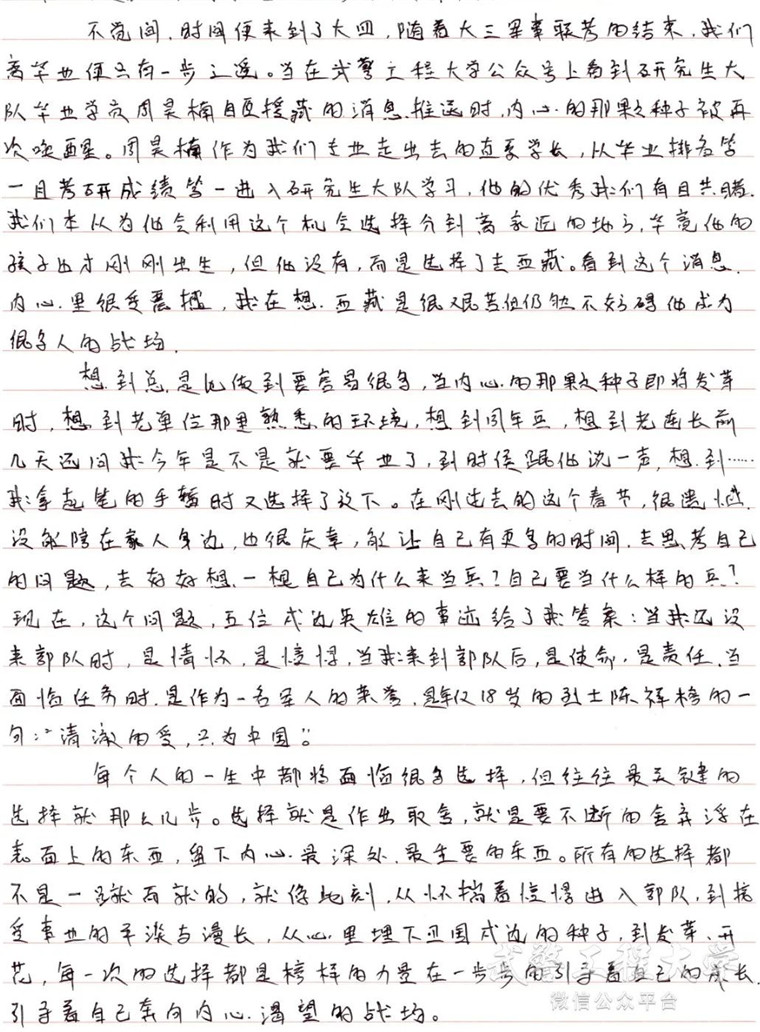 不觉间,时间便来到了大四,随着大三军事联考的结束,我们
离毕业便只有一步之遥。当在武警工程大学公众号上看到研究生大
队毕业学员周昊楠自愿援藏的消息推送时,内心的那颗种子被再
次唤醒。周昊楠作为我们专业走出去的直系学长,从毕业排名第
一且考研成绩第一进入研究生大队学习,他的优秀我们有目共睹。
我们本以为他会利用这个机会选择分到离家近的地方,毕竟他的
孩子也才刚刚出生,但他没有,而是选择了去西藏。看到这个消息,
内心里很受震撼,我在想,西藏是很艰苦但仍然不妨碍他成为
很多人的战场。
想到总是比做到要容易很多,当内心的那颗种子即将发芽
时,想到老单位那里熟悉的环境,想到同年兵,想到老连长前
几天还问我今年是不是就要毕业了,到时候跟他说一声,想到……
我拿起笔的手暂时又选择了放下。在刚过去的这个春节,很遗憾,
没能陪在家人身边,也很庆幸,能让自己有更多的时间,去思考自己
的问题,去好好想一想自己为什么来当兵?自己要当什么样的兵?
现在,这个问题,五位戍边英雄的事迹给了我答案:当我还没
来部队时,是情怀,是憧憬,当我来到部队后,是使命,是责任,当
面临任务时,是作为一名军人的荣誉,是年仅18岁的烈士陈祥榕的一
句:“清澈的爱,只为中国”。
每个人的一生中都将面临很多选择,但往往最关键的
选择就那么几步。选择就是作出取舍,就是要不断的舍弃浮在
表面上的东西,留下内心最深处、最主要的东西。所有的选择都
不是一蹴而就的,就像此刻,从怀揣着憧憬进入部队,到接
受事业的平淡与漫长,从心里埋下卫国戍边的种子,到发芽、开
花,每一次的选择都是榜样的力量在一步步的引导着自己的成长,
引导着自己奔向内心渴望的战场。
武警工程大学
微信公众平台